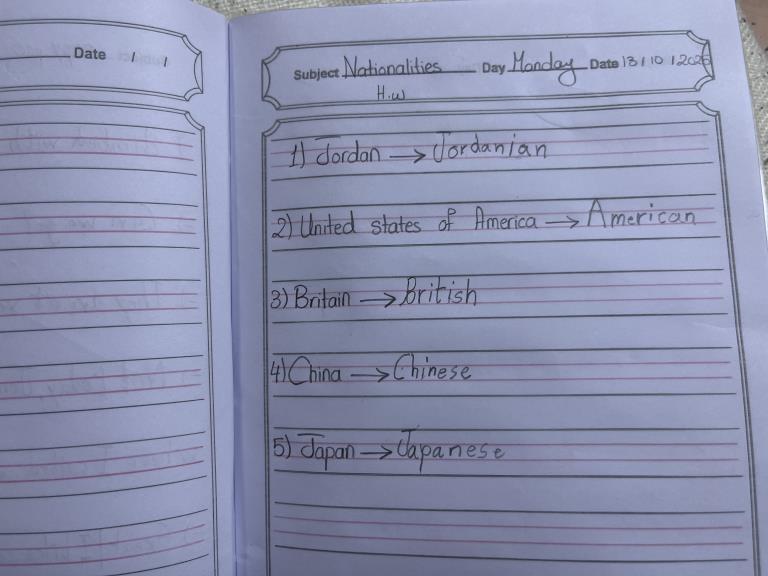 Date / /
Subject Nationalities Day Monday Date 13 / 10 / 2025
H.w
1) Jordan → Jordanian
2) United states of America → American
3) Britain → British
4) China → Chinese
5) Japan → Japanese